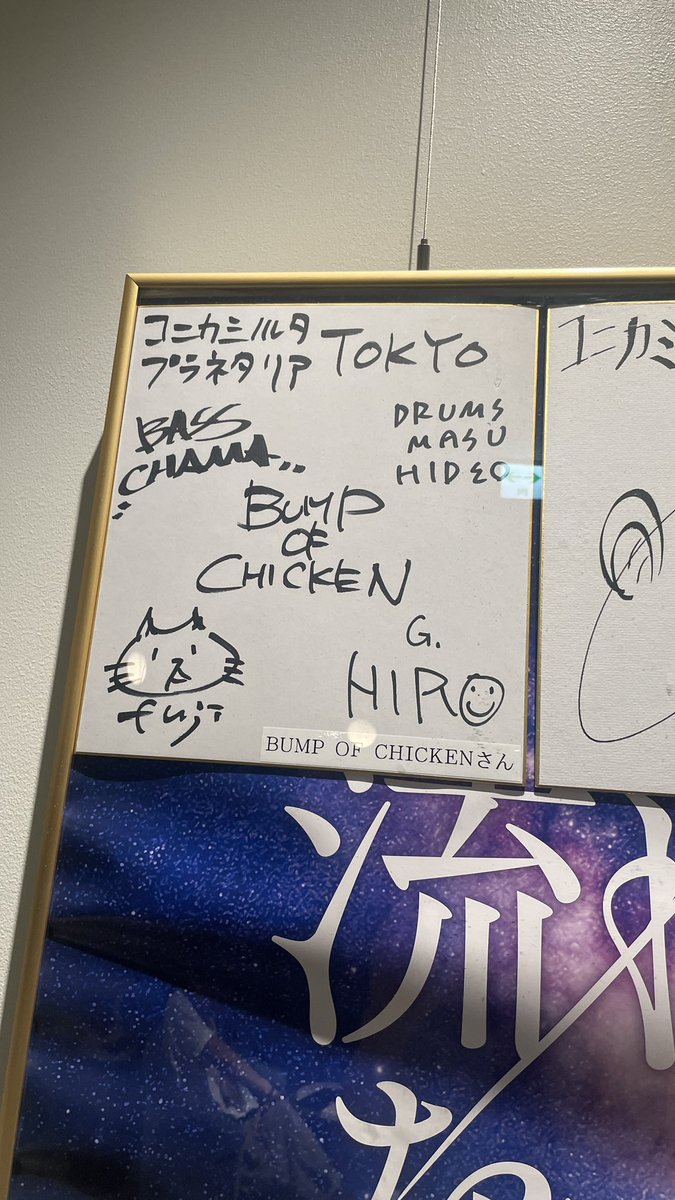 コニカミノルタ
プラネタリア TOKYO
BASS
CHAMA
DRUMS
MASU
HIDEO
BUMP
OF
CHICKEN
fuji
G.
HIRO
BUMP OF CHICKENさん
コニカミ
流れ